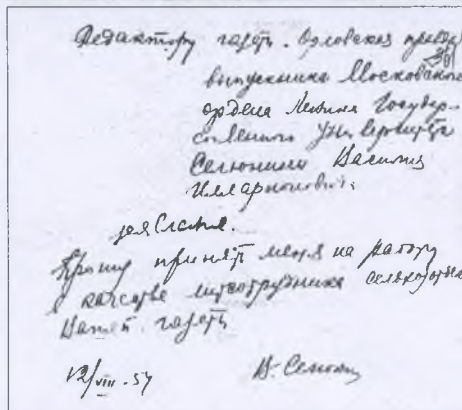 Редактору газеты "Орловская правда"
выпускника Московского
ордена Ленина Государ-
ственного Университета
Селюнина Василия
Илларионовича
заявление.
Прошу принять меня на работу
в качестве литсотрудника сельхозотдела
Вашей газеты
12/VIII-54 В. Селюнин